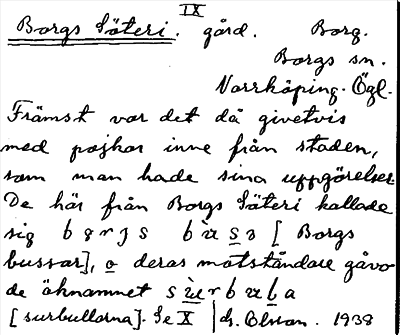 IX
Borgs Säteri. gård. Borg.
Borgs sn.
Norrköping. Ögl.
Främst var det då givetvis
med pojkar inne från staden,
som man hade sina uppgörelser
De här från Borgs Säteri kallade
sig [Borgs
bussar], o deras motståndare gåvo
de öknamnet
[surbullorna]. Se X | 1938